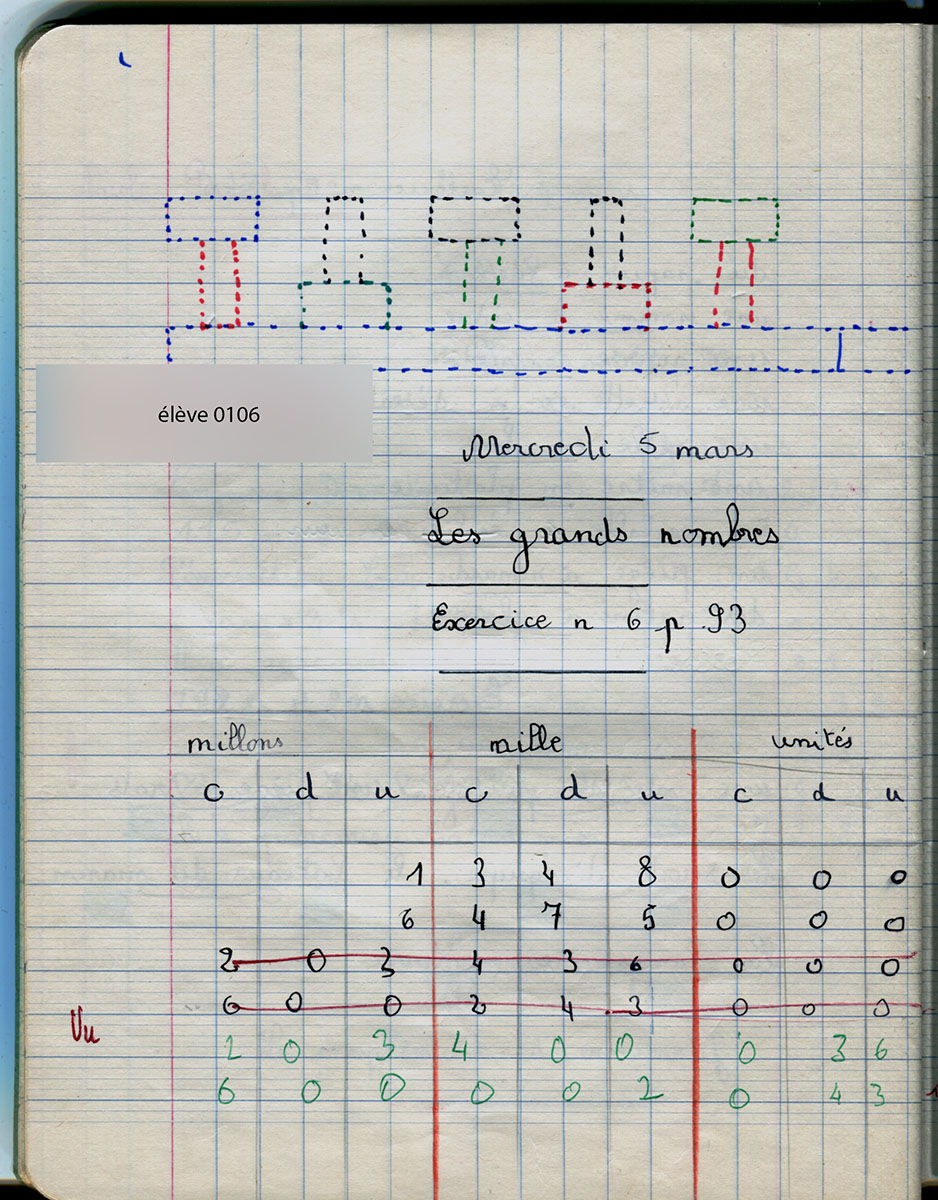 élève 0106
Mercredi 5 mars
Les grands nombres
Exercice n 6 p.93
millons mille unités
c d u c d u c d u
1 3 4 8 0 0 0
6 4 7 5 0 0 0
2 0 3 4 3 6 0 0 0
6 0 0 2 4 3 0 0 0
Vu
2 0 3 4 0 0 0 3 6
6 0 0 0 0 2 0 4 3